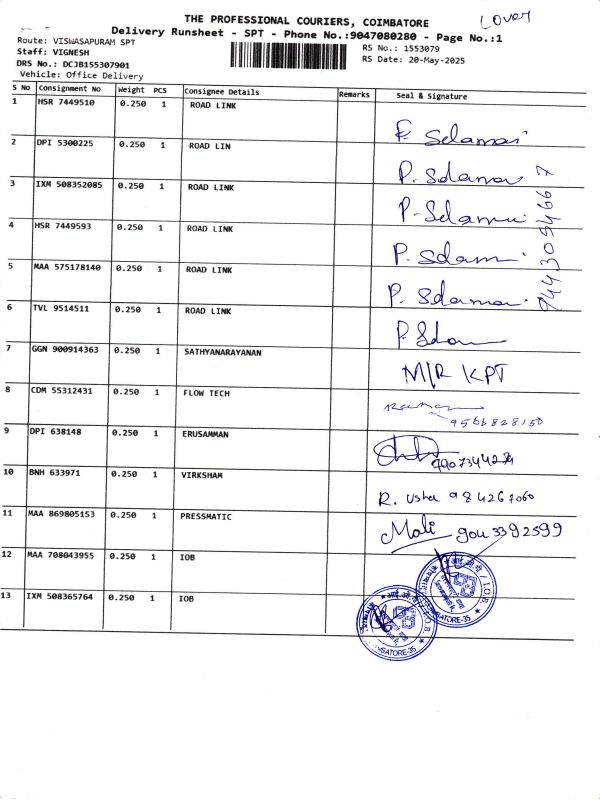 THE PROFESSIONAL COURIERS, COIMBATORE
Delivery Runsheet - SPT - Phone No.:9047080280 - Page No.:1
Route: VISWASAPURAM SPT
RS No.: 1553079
Staff: VIGNESH
RS Date: 20-May-2025
DRS No.: DCJB155307901
Vehicle: Office Delivery
S No Consignment No Weight PCS Consignee Details Remarks Seal & Signature
1 HSR 7449510 0.250 1 ROAD LINK
2 DPI 5300225 0.250 1 ROAD LIN
3 IXM 508352085 0.250 1 ROAD LINK
4 HSR 7449593 0.250 1 ROAD LINK
5 MAA 575178140 0.250 1 ROAD LINK
6 TVL 9514511 0.250 1 ROAD LINK
7 GGN 900914363 0.250 1 SATHYANARAYANAN M/R KPT
8 CDM 55312431 0.250 1 FLOW TECH
9 DPI 638148 0.250 1 ERUSAMMAN
10 BNH 633971 0.250 1 VIRKSHAM R. Usha 984267060
11 MAA 869805153 0.250 1 PRESSMATIC Mali 9043392599
12 MAA 708043955 0.250 1 IOB
13 IXM 508365764 0.250 1 IOB
9443054667